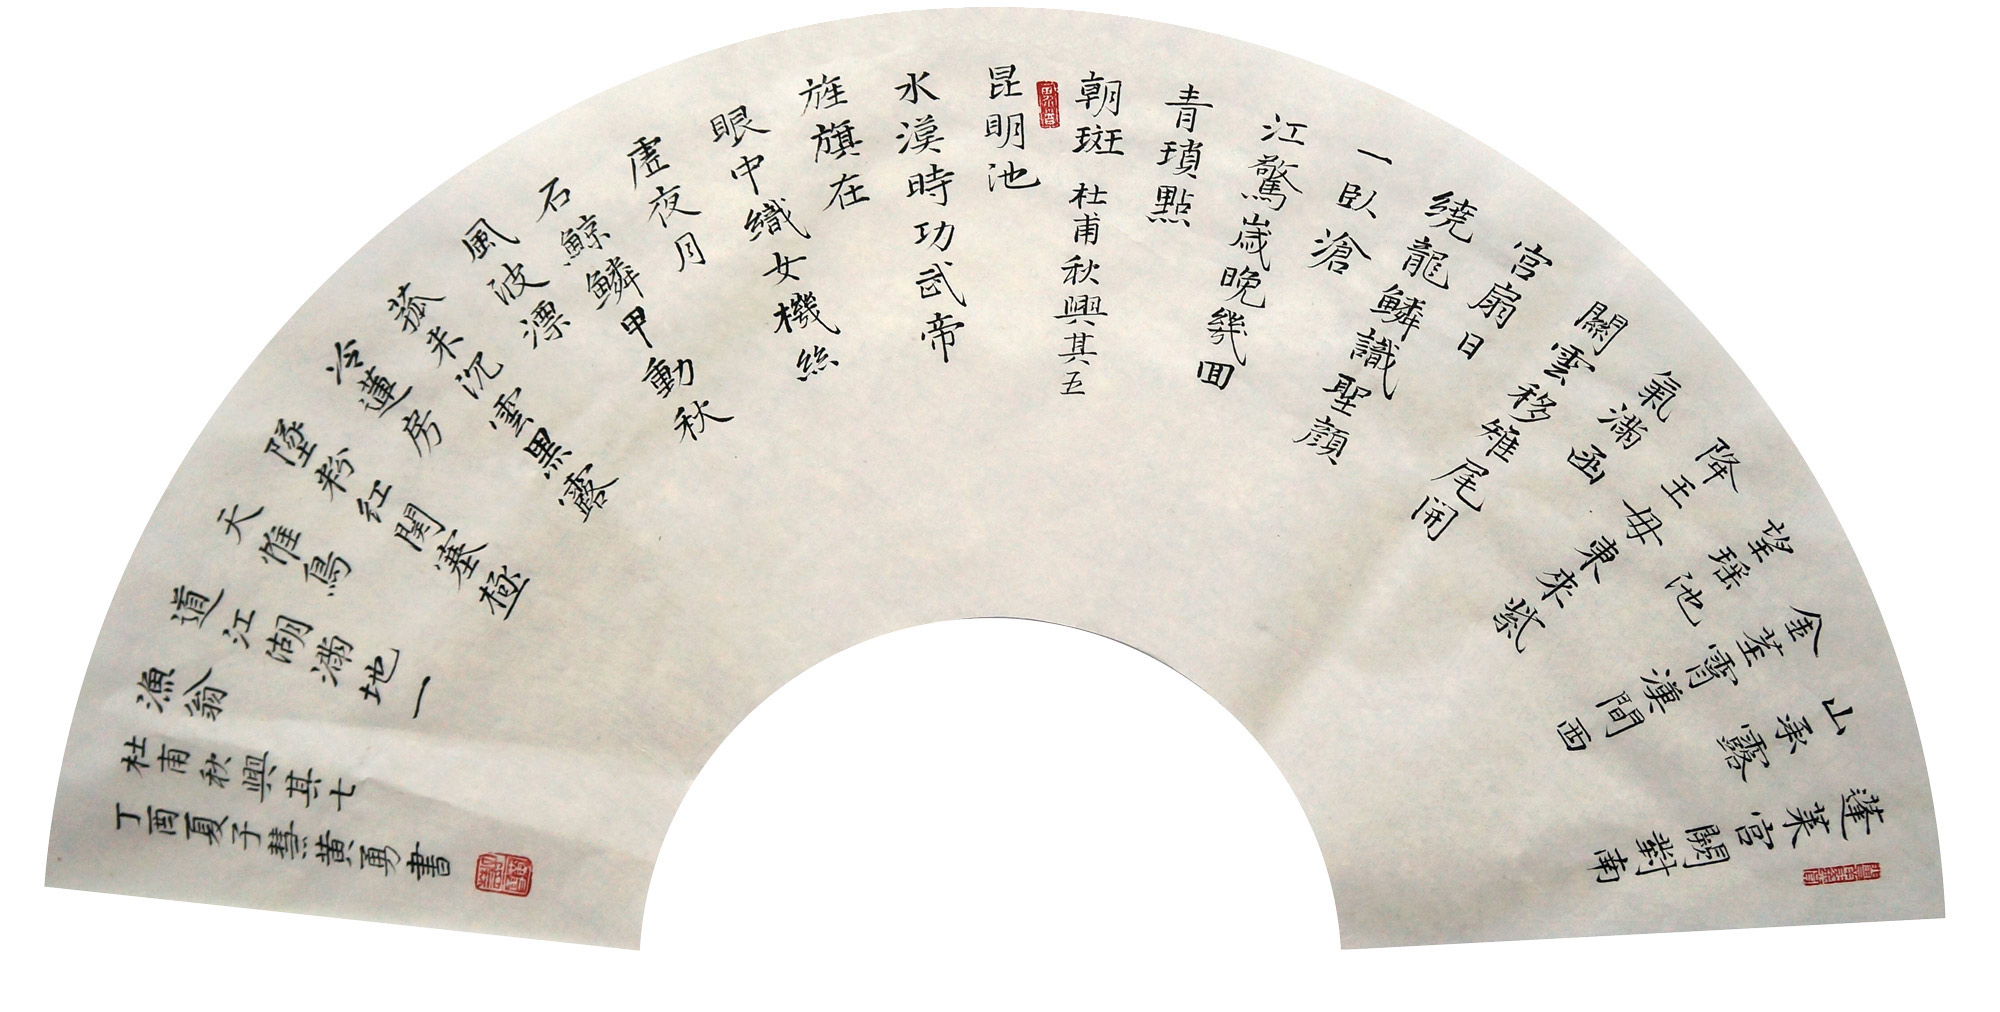 蓬萊宮闕對南
山承露
金莖霄漢間西
望瑤池
降王母東來紫
氣滿函
關雲移雉尾開
宮扇日
繞龍鱗識聖顏
一臥滄
江驚歲晚幾囬
青瑣點
朝斑 杜甫秋興其五
昆明池
水漢時功武帝
旌旗在
眼中織女機絲
虛夜月
石鯨鱗甲動秋
風波漂
菰米沉雲黑露
冷蓮房
墜粉紅關塞極
天惟鳥
道江湖滿地一
漁翁
杜甫秋興其七
丁酉夏子慧黃勇書